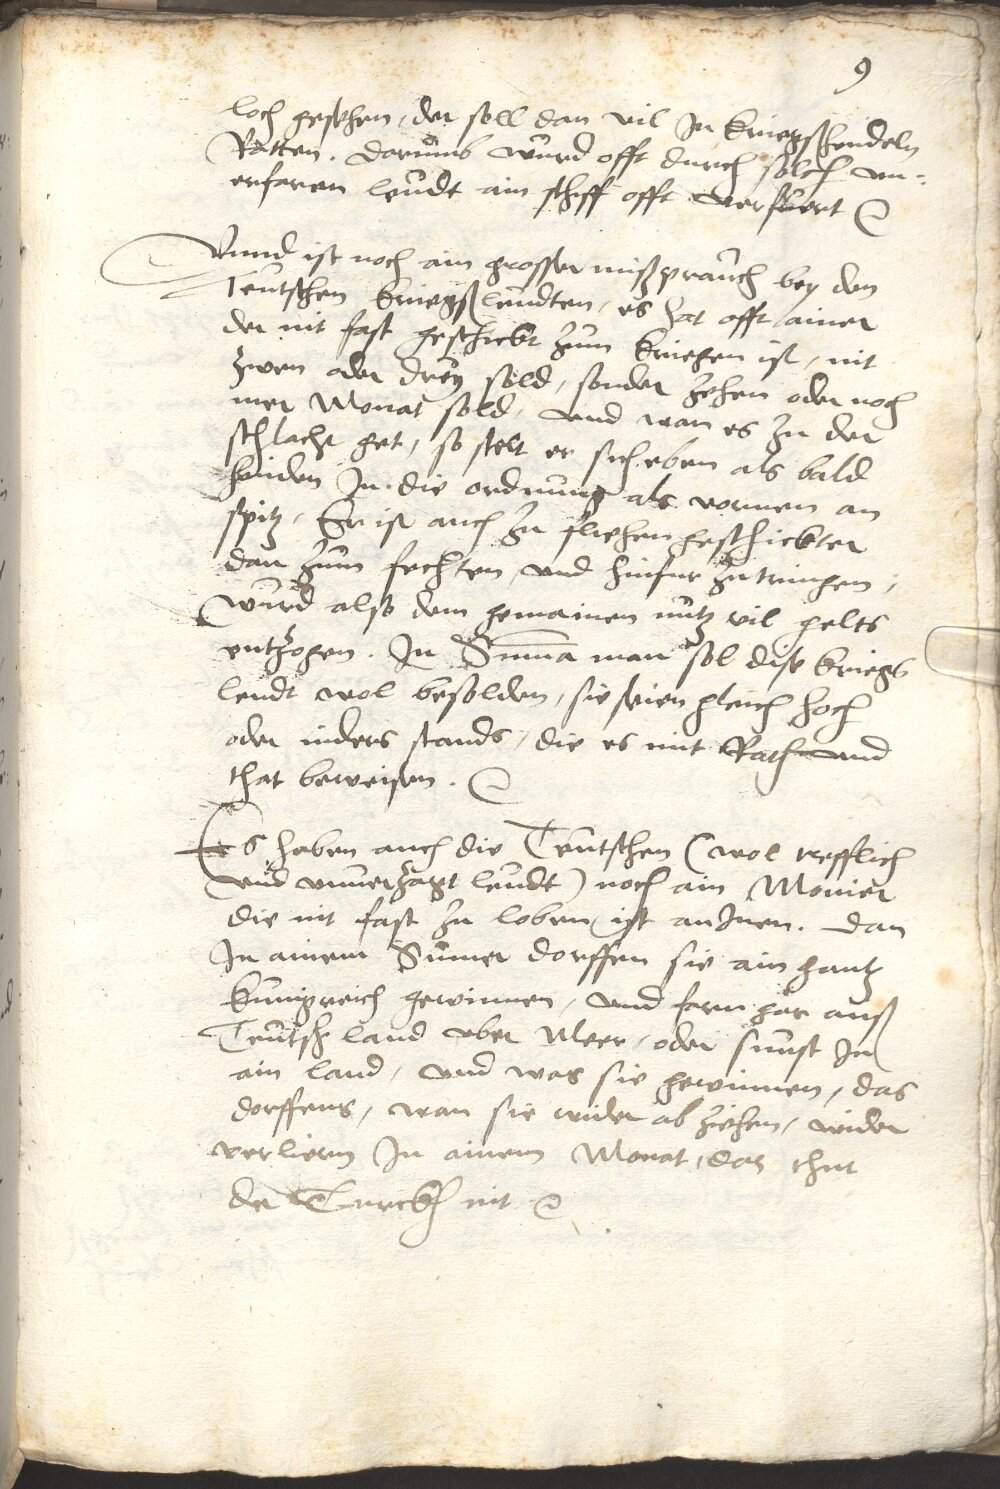 9
loch gesehen, der soll dan vil In kriegßhendeln
Ratten. Darumb wurd offt durch solch vn-
erfaren leudt ain schiff offt verfuert
Vnnd ist noch ain grosser mißprauch bey den
Teutschen kriegßleudten, es hat offt ainer
der nit fast geschickt zum kriegen ist, nit
zwen oder drey söld, sonder zehen oder noch
mer Monat sold, vnd wan es zu der
schlacht get, so stelt er sich eben als bald
hinden In die ordnung als vornen an
spitz, Er ist auch zu fliehen geschickter
dan zum fechten, vnd hinfur zutringen,
wurd also dem gemainen nutz vil gelts
entzogen. In Summa man sol dise kriegs
leudt wol besolden, sie seien gleich hoch
oder niders stands, die es mit Rath vnd
that beweisen.
Es haben auch die Teutschen (wol trefflich
vnd vnuerzagt leudt) noch ain Monier
die nit fast zu loben ist an Inen. Dan
In ainem Sumer dorffen sie ain gantz
kunigreich gewinnen, vnd farn gar auß
Teutschland vber Meer, oder sunst In
ain land, vnd was sie gewinnen, das
dorffens, wan sie wider ab ziehen, wider
verliern In ainem Monat, das thut
der Turckh nit